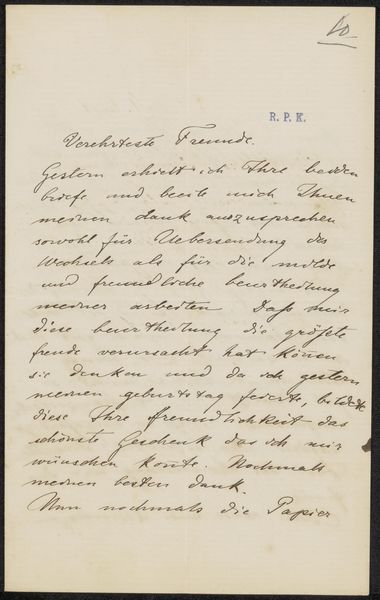 10
R. P. K.
Verehrteste Freunde.
Gestern erhielt ich Ihre beiden
briefe und beeile mich Ihnen
meinen dank auszusprechen
sowohl für Uebersendung des
Wechsels als für die milde
und freundliche beurtheilung
meiner arbeiten Daß mir
diese beurtheilung die größte
freude verursacht hat können
sie denken und da ich gestern
meinen geburtstag feierte, bildete
diese Ihre freundlichkeit das
schönste Geschenk das ich mir
wünschen konte. Nochmals
meinen besten dank.
Nun nochmals die Papier